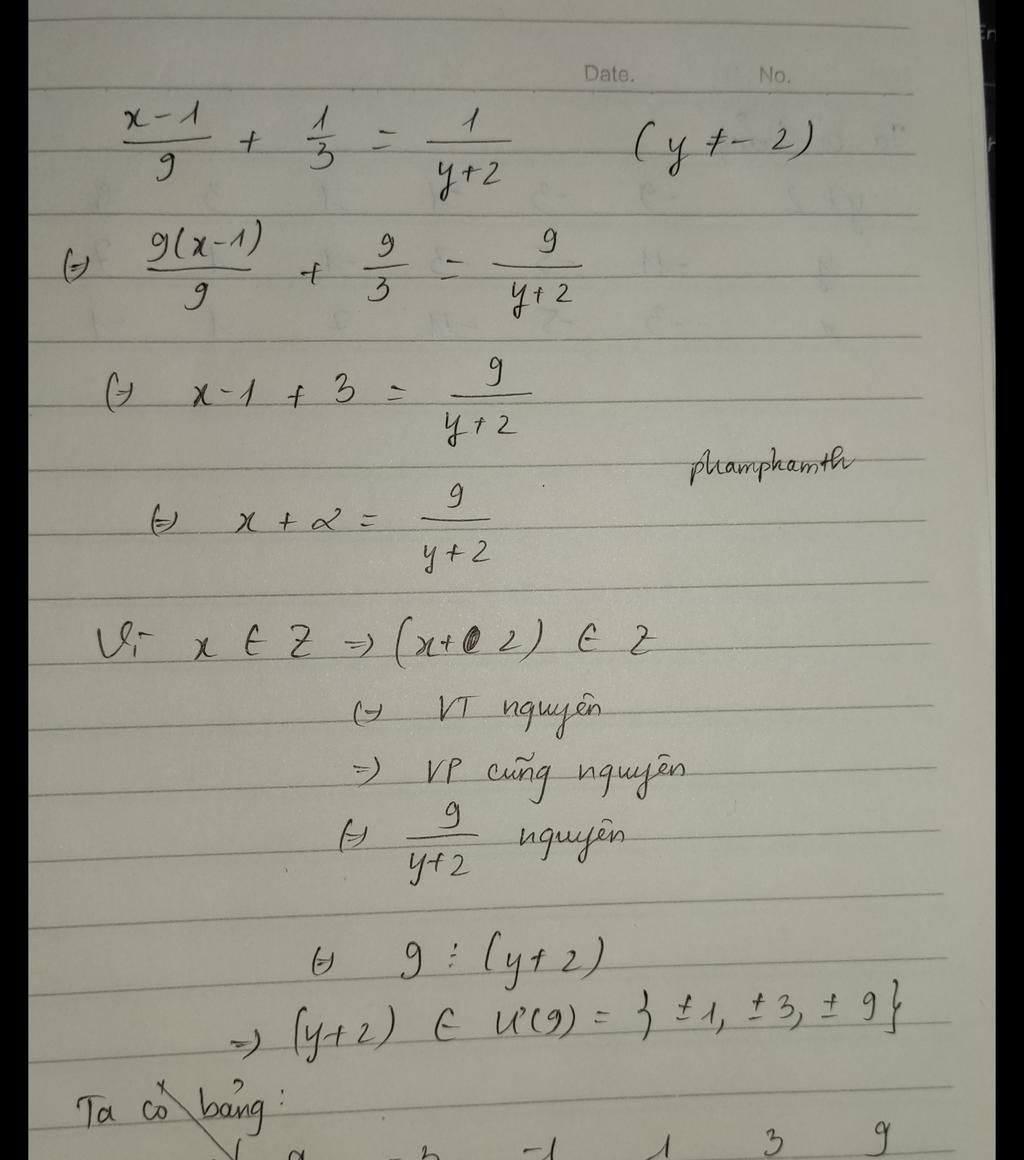 Date. No.
x-1/9 + 1/3 = 1/y+2 (y ≠ -2)
(=) 9(x-1)/9 + 9/3 = 9/y+2
(=) x-1 + 3 = 9/y+2
phamphamth
(=) x + 2 = 9/y+2
Vì x ∈ Z => (x+ 2) ∈ Z
(=) VT nguyên
=> VP cũng nguyên
(=) 9/y+2 nguyên
(=) 9 ⋮ (y+2)
=> (y+2) ∈ Ư(9) = { ±1, ±3, ±9}
Ta có bảng:
-1 1 3 9